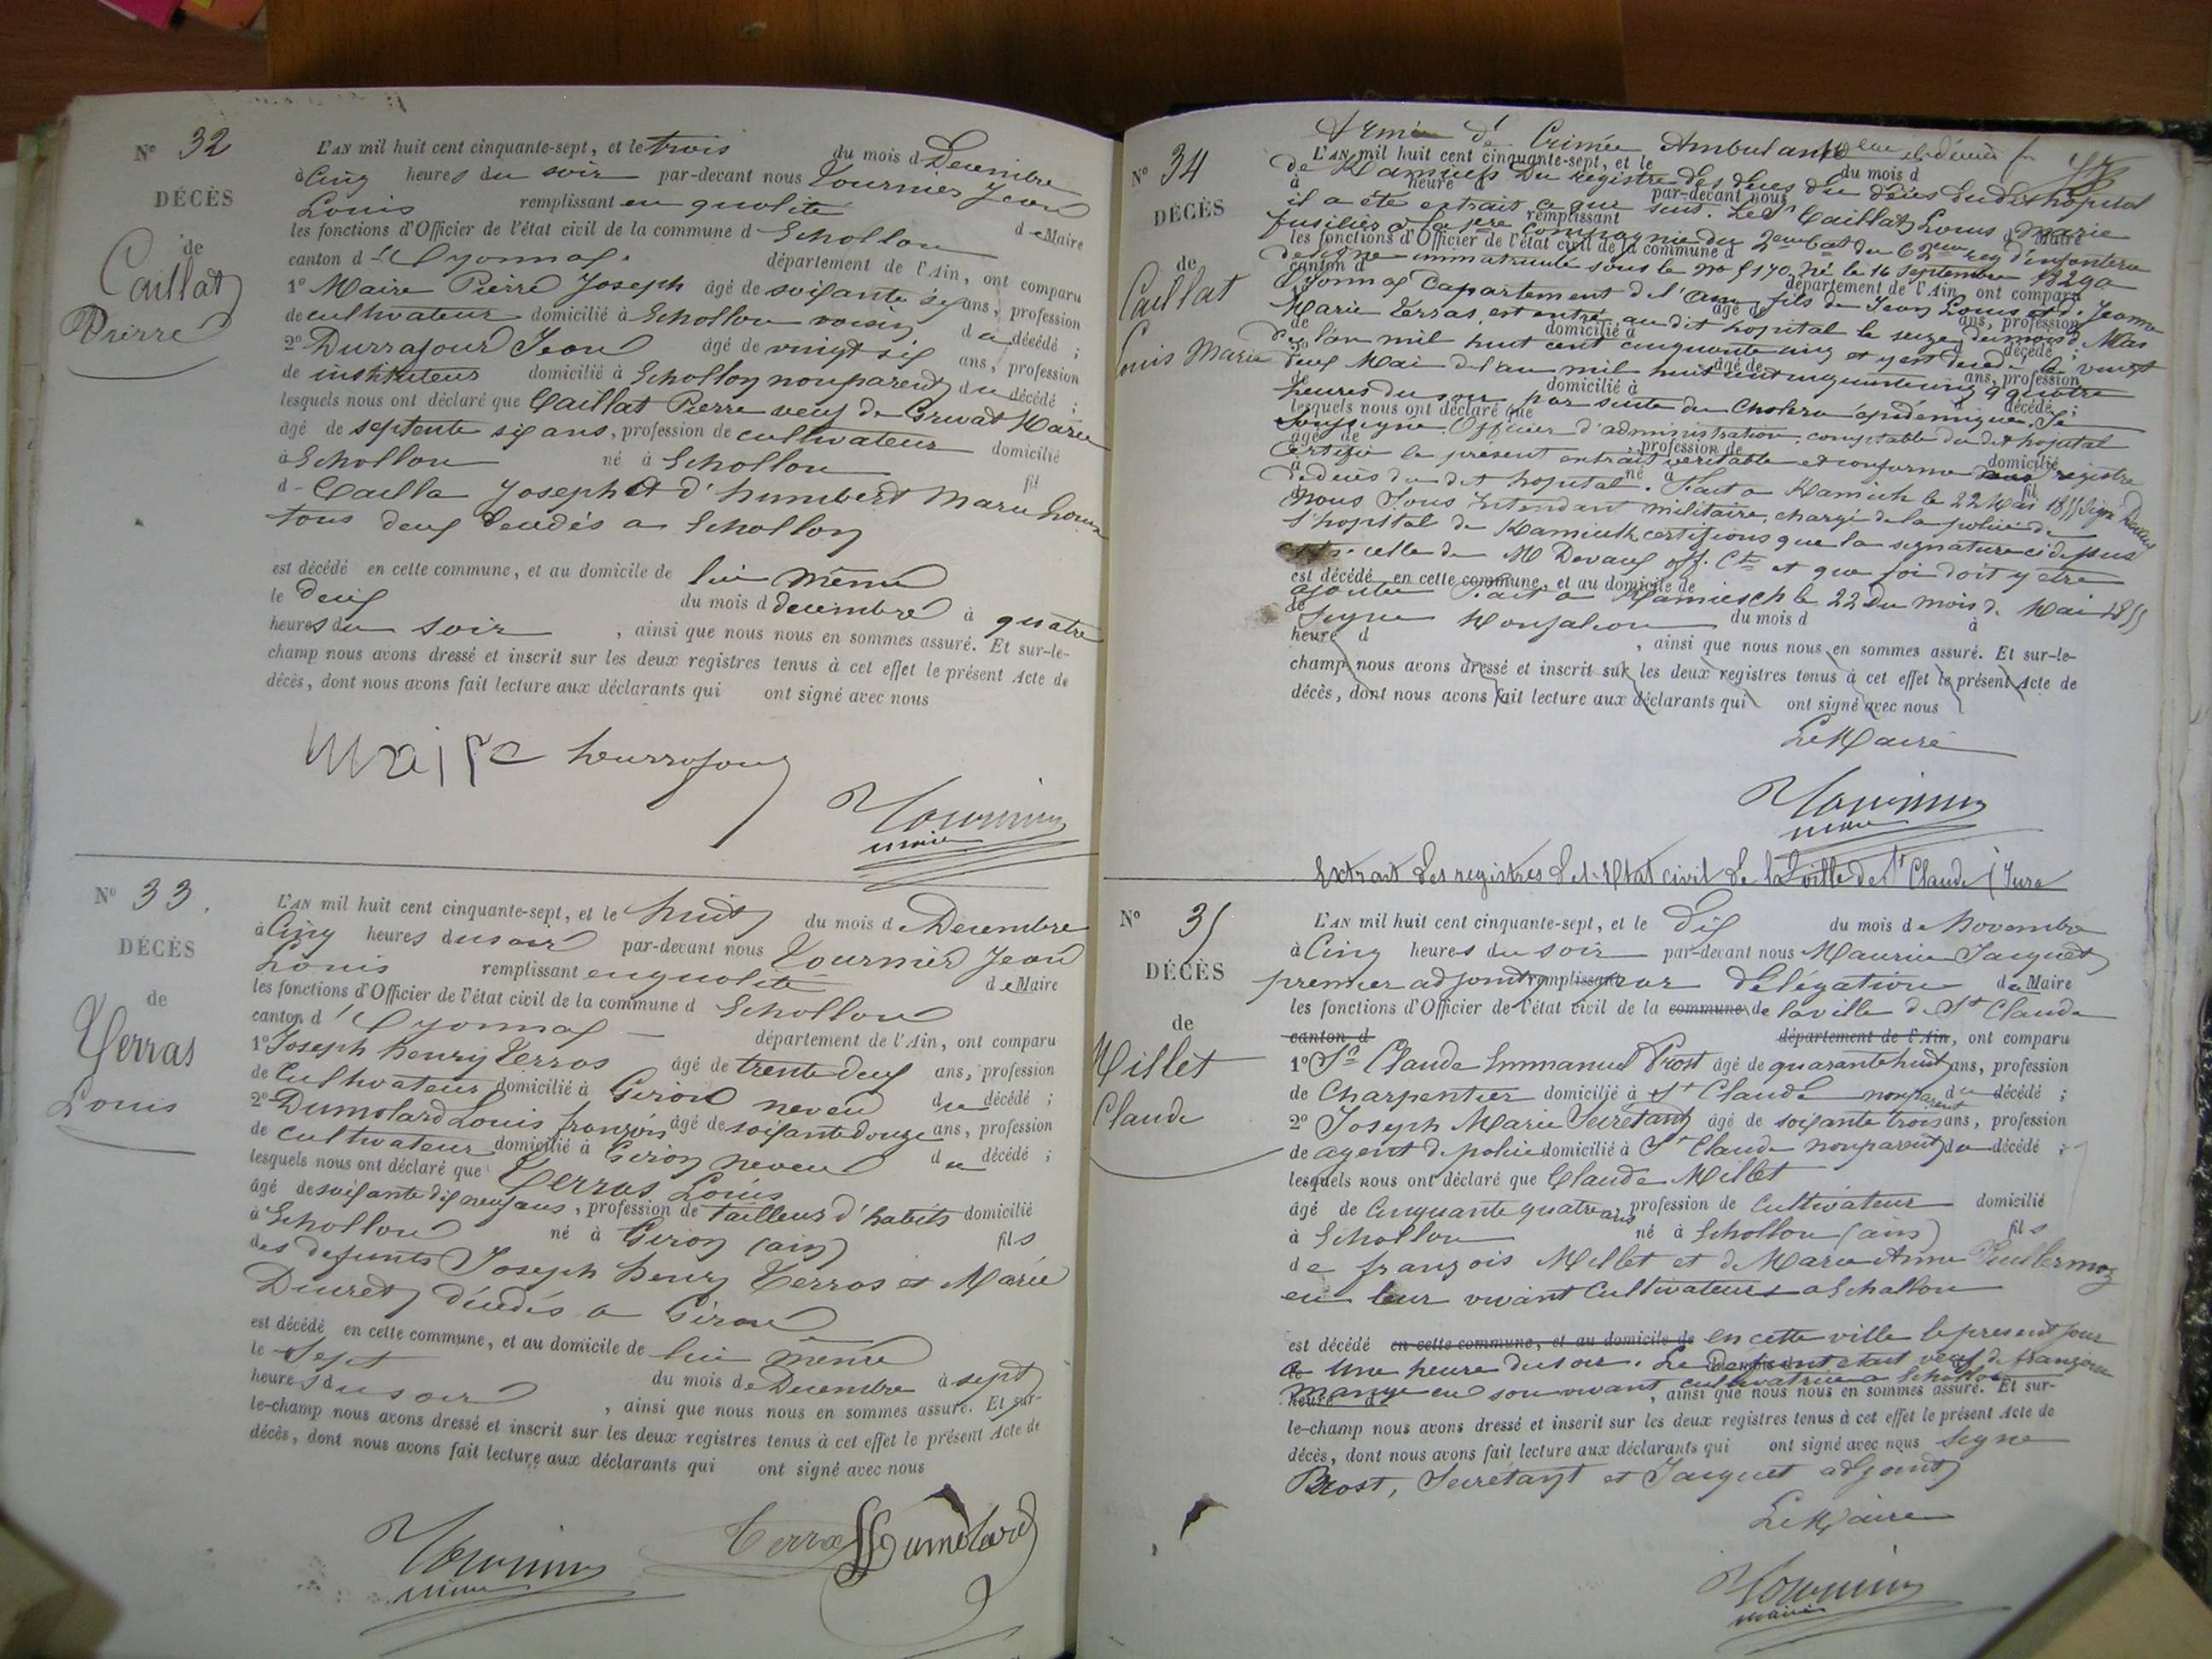 N° 32
DÉCÈS
de
Caillat
Pierre
L'AN mil huit cent cinquante-sept, et le trois du mois d Decembre
à Cinq heures du soir par-devant nous Tournier Jean
Louis remplissant en qualité d e Maire
les fonctions d'Officier de l'état civil de la commune d Echallon
canton d' Oyonnax département de l'Ain, ont comparu
1° Maire Pierre Joseph âgé de soixante six ans, profession
de cultivateur domicilié à Echallon voisin d u décédé ;
2° Durrafour Jean âgé de vingt six ans, profession
de instituteur domicilié à Echallon non parent d u décédé ;
lesquels nous ont déclaré que Caillat Pierre veuf de Grivat Marie
âgé de septente six ans, profession de cultivateur domicilié
à Echallon né à Echallon fil
d Cailla Joseph et d' humbert Marie Louise
tous deux décédés a Echallon
est décédé en cette commune, et au domicile de lui même
le Deux du mois d decembre à quatre
heures du soir , ainsi que nous nous en sommes assuré. Et sur-le-
champ nous avons dressé et inscrit sur les deux registres tenus à cet effet le présent Acte de
décès, dont nous avons fait lecture aux déclarants qui ont signé avec nous
Maire
Tournier
maire
N° 33.
DÉCÈS
de
Verras
Louis
L'AN mil huit cent cinquante-sept, et le huit du mois d e Decembre
à Cinq heures du soir par-devant nous Tournier Jean
Louis remplissant en qualité d e Maire
les fonctions d'Officier de l'état civil de la commune d Echallon
canton d' Oyonnax département de l'Ain, ont comparu
1° Joseph henry Verras âgé de trente deux ans, profession
de Cultivateur domicilié à Giron neveu d u décédé ;
2° Dumolard Louis françois âgé de soixante douze ans, profession
de cultivateur domicilié à Giron neveu d u décédé ;
lesquels nous ont déclaré que Verras Louis
âgé de soixante dix neuf ans, profession de tailleur d'habits domicilié
à Echallon né à Giron (ain) fils
des defunts Joseph henry Verras et Marie
Ducret décédés a Giron
est décédé en cette commune, et au domicile de lui même
le Sept du mois de Decembre à sept
heures du soir , ainsi que nous nous en sommes assuré. Et sur-
le-champ nous avons dressé et inscrit sur les deux registres tenus à cet effet le présent Acte de
décès, dont nous avons fait lecture aux déclarants qui ont signé avec nous
Tournier
maire
Verras Dumolard
N° 34
DÉCÈS
de
Caillat
Louis Marie
Armée de Crimée Ambulance
L'AN mil huit cent cinquante-sept, et le du mois d
de Kamiesh Du registre des décès du dit hopital
à heure d par-devant nous
il a été extrait ce que suit. Le Sr Caillat Louis Marie
remplissant d Maire
fusilier à la 1ere Compagnie du 2eme bat du 62eme reg d'infanterie
les fonctions d'Officier de l'état civil de la commune d
de ligne immatriculé sous le no 5170, né le 16 Septembre 1829 a
canton d département de l'Ain, ont comparu
Oyonnax Département de l'Ain, fils de Jean Louis et de Jeanne
âgé de ans, profession
Marie Verras, est entré au dit hopital le seize du mois de Mai
de domicilié à d décédé ;
de l'an mil huit cent cinquante cinq et y est décédé le vingt
âgé de ans, profession
deux Mai de l'an mil huit cent cinquante cinq à quatre
domicilié à d décédé ;
heures du soir par suite du Cholera épidémique. Je
lesquels nous ont déclaré que
soussigné Officier d'administration, comptable du dit hopital
âgé de , profession de domicilié
Certifie le présent extrait véritable et conforme aux registre
à né à fil
de décès du dit hopital. Fait a Kamiesh le 22 Mai 1855 Signé Devaux
Nous Sous Intendant militaire, chargé de la police de
l'hopital de Kamiesh certifions que la signature ci dessus
est celle de M Devaux off. Cte et que foi doit y être
est décédé en cette commune, et au domicile de
ajoutée Fait a Kamiesch le 22 du mois de Mai 1855
Signé du mois d à
heure d , ainsi que nous nous en sommes assuré. Et sur-le-
champ nous avons dressé et inscrit sur les deux registres tenus à cet effet le présent Acte de
décès, dont nous avons fait lecture aux déclarants qui ont signé avec nous
Le Maire
Tournier
maire
Extrait des registres de l'Etat civil de la ville de St Claude (Jura
N° 35
DÉCÈS
de
Millet
Claude
L'AN mil huit cent cinquante-sept, et le Dix du mois de Novembre
à Cinq heures du soir par-devant nous Maurice Jacquet
premier adjoint remplissant par délégation du Maire
les fonctions d'Officier de l'état civil de la commune de la ville de St Claude
canton d département de l'Ain, ont comparu
1° Sr Claude Emmanuel Prost âgé de quarante huit ans, profession
de Charpentier domicilié à St Claude non parent du décédé ;
2° Joseph Marie Secrétant âgé de soixante trois ans, profession
de agent de police domicilié à St Claude non parent du décédé ;
lesquels nous ont déclaré que Claude Millet
âgé de Cinquante quatre ans profession de Cultivateur domicilié
à Echallon né à Echallon (ain) fils
de françois Millet et de Marie Anne Guillermoz
en leur vivant Cultivateurs a Echallon
est décédé en cette commune, et au domicile de en cette ville le present jour
a Une heure du soir. Le defunt etait veuf de françoise
en son vivant cultivatrice a Echallon
heure d , ainsi que nous nous en sommes assuré. Et sur-
le-champ nous avons dressé et inscrit sur les deux registres tenus à cet effet le présent Acte de
décès, dont nous avons fait lecture aux déclarants qui ont signé avec nous Signé
Prost, Secrétant et Jacquet adjoint
Le Maire
Tournier
maire